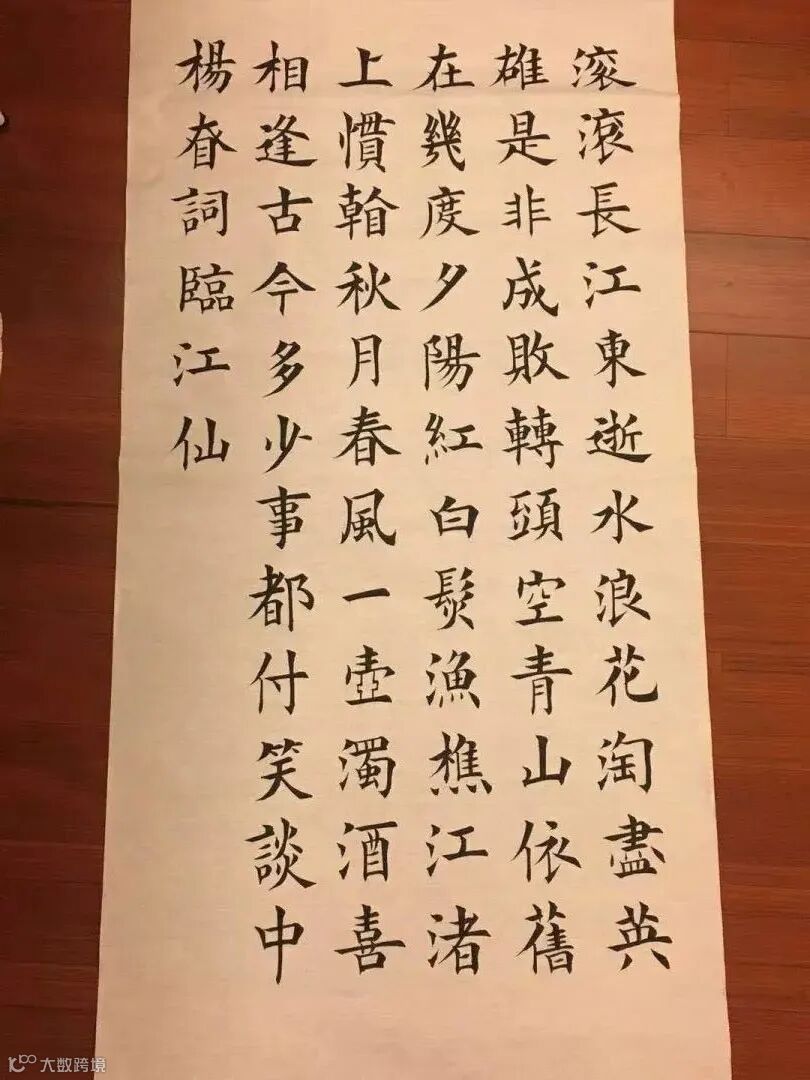 滚滚長江東逝水浪花淘盡英
雄是非成敗轉頭空青山依舊
在幾度夕陽紅白髮漁樵江渚
上慣看秋月春風一壺濁酒喜
相逢古今多少事都付笑談中
楊眘詞臨江仙
大数跨境